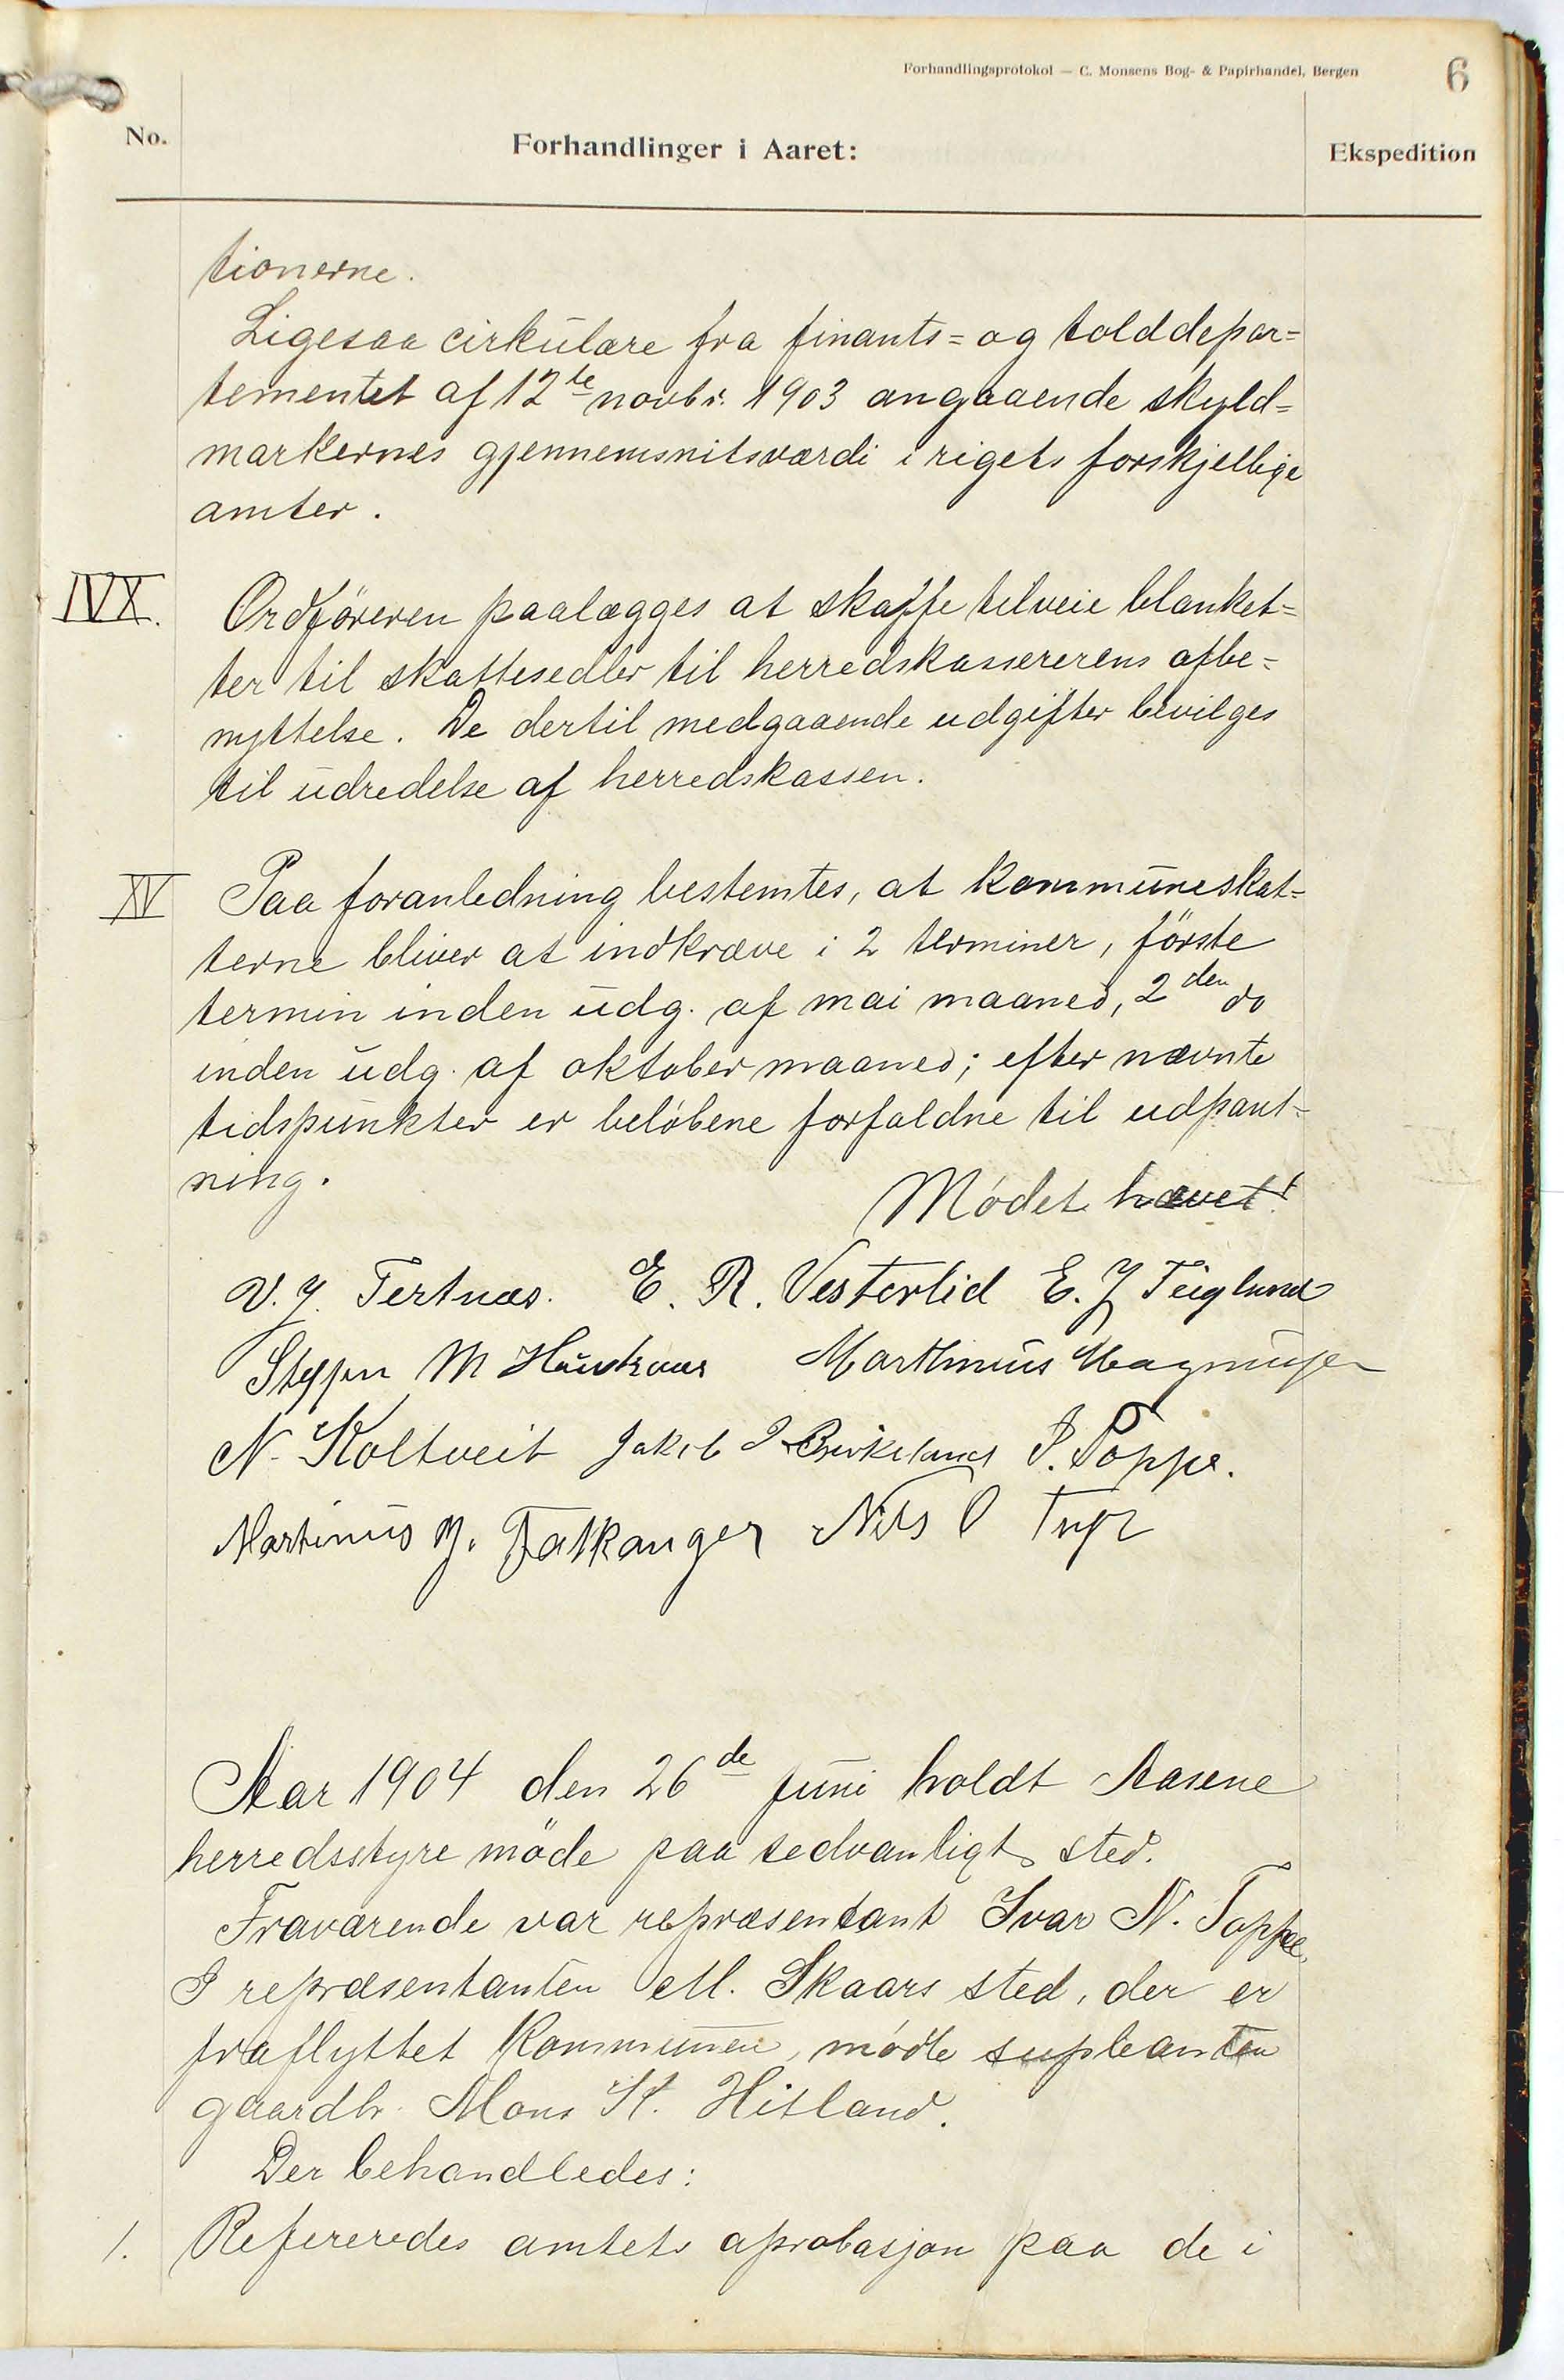 Forhandlingsprotokol — C. Monsens Bog- & Papirhandel, Bergen
6
No.
Forhandlinger i Aaret:
Ekspedition
tionerne.
Ligesaa cirkulære fra finants= og tolddepar=
tementet af 12te novbr. 1903 angaaende skyld=
markernes gjennemsnitsværdi i rigets forskjellige
amter.
IVX. Ordföreren paalægges at skaffe tilveie blanket=
ter til skattesedler til herredskassererens afbe=
nyttelse. De dertil medgaaende udgifter bevilges
til udredelse af herredskassen.
XV Paa foranledning bestemtes, at kommuneskat=
terne bliver at indkræve i 2 terminer, förste
termin inden udg. af mai maaned, 2den do
inden udg. af oktober maaned; efter nævnte
tidspunkter er belöbene forfaldne til udpant=
ning.
Mödet hævet!
V. J. Tertnæs. E. R. Vesterlid E. J Teiglund
Steffen M Haukaas Marthinus Magnusen
N. Koltveit Jakob I Birkeland I. Toppe.
Martinus M. Falkanger Nils O
Aar 1904 den 26de juni holdt Aasene
herredsstyre möde paa sedvanligt sted.
Fraværende var repræsentant Ivar N. Toppe.
I repræsentanten M. Skaars sted, der er
fraflyttet Kommunen, mödte supleanten
gaardbr. Mons St. Hitland.
Der behandledes:
1. Refereredes amtets aprobasjon paa de i